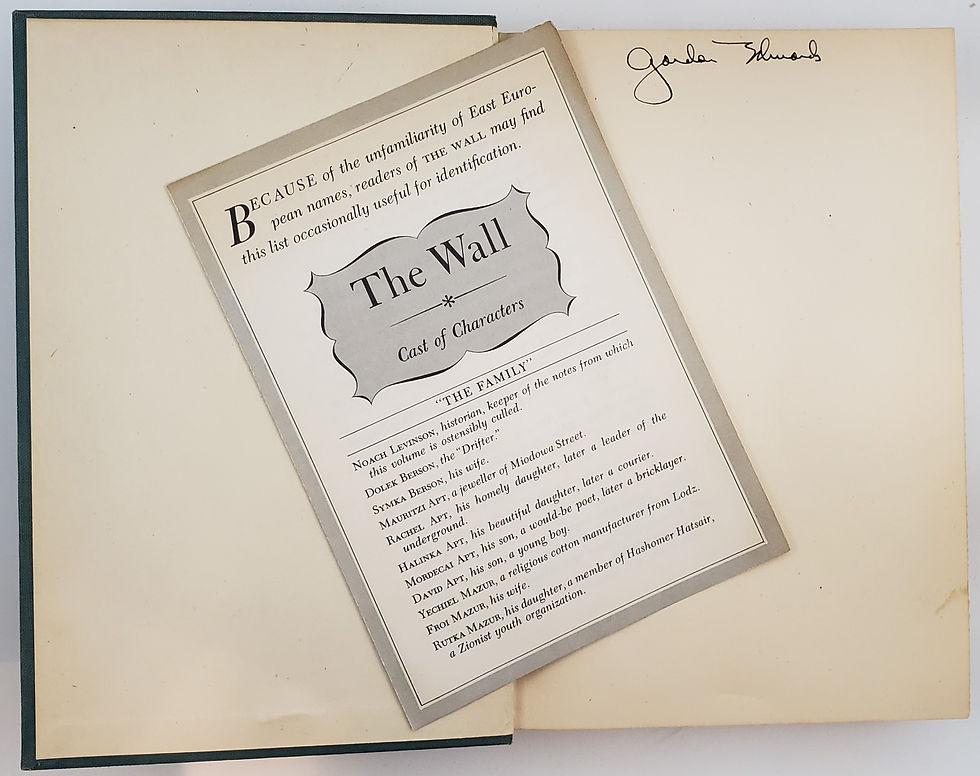 BECAUSE of the unfamiliarity of East Euro-
pean names, readers of THE WALL may find
this list occasionally useful for identification.
The Wall
*
Cast of Characters
"THE FAMILY"
NOACH LEVINSON, historian, keeper of the notes from which
this volume is ostensibly culled.
DOLEK BERSON, the "Drifter."
SYMKA BERSON, his wife.
MAURITZI APT, a jeweller of Miodowa Street.
RACHEL APT, his homely daughter, later a leader of the
underground.
HALINKA APT, his beautiful daughter, later a courier.
MORDECAI APT, his son, a would-be poet, later a bricklayer.
DAVID APT, his son, a young boy.
YECHIEL MAZUR, a religious cotton manufacturer from Lodz.
FROI MAZUR, his wife.
RUTKA MAZUR, his daughter, a member of Hashomer Hatsair,
a Zionist youth organization.
Gordon Edwards